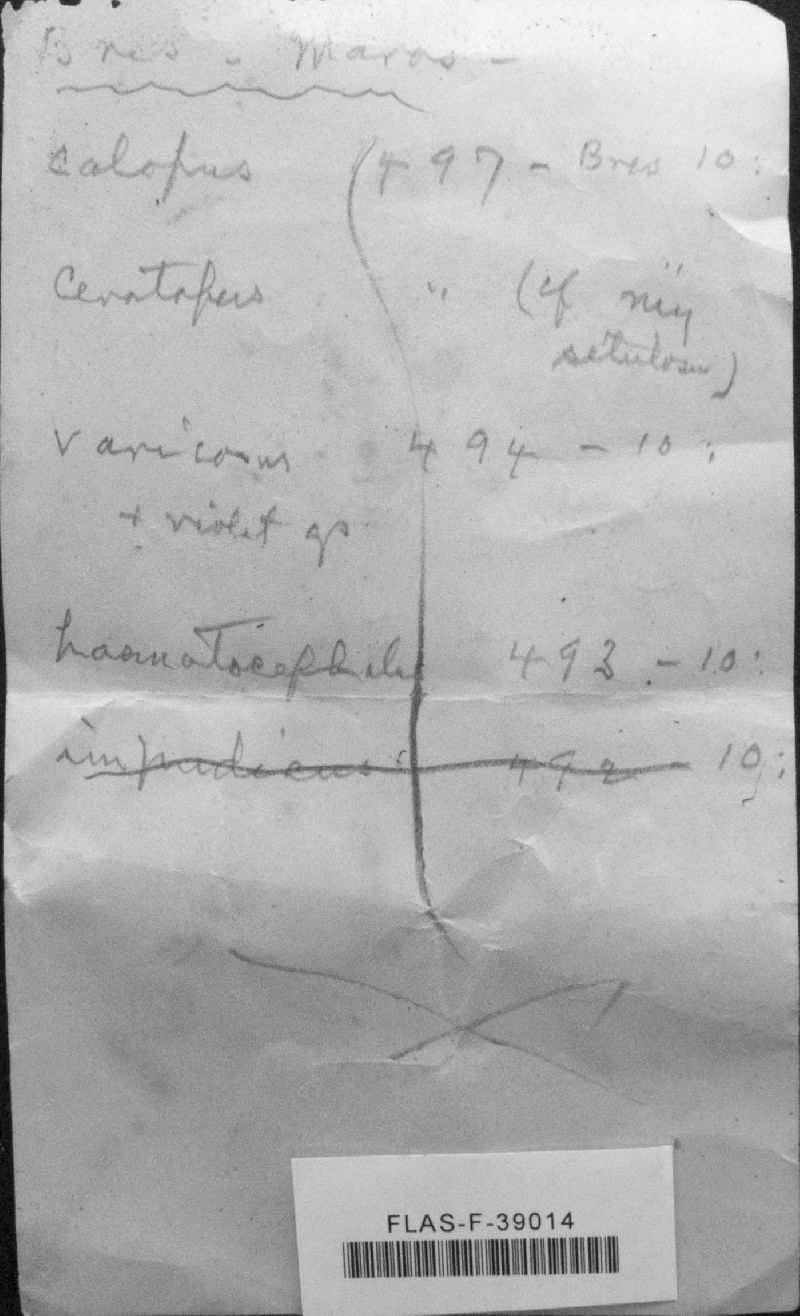 Bres - Maras -
calopus (497 - Bres 10:
Ceratopus " (cf
setulosus)
varicosus 494 - 10:
+ violet gs
haematocephala 493 - 10:
impudicus: 492 - 10;
FLAS-F-39014